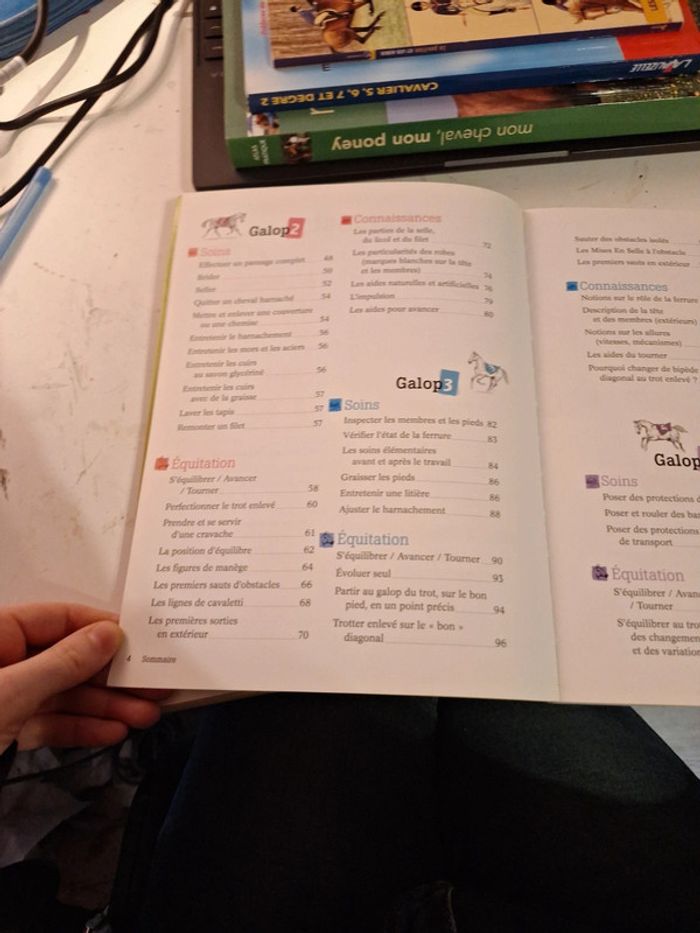 LAVAUZELLE
CAVALIER 5, 6, 7 ET DEGRE 2
mon cheval, mon poney
ATLAS
PRATIQUE
Galop2
Soins
Effectuer un pansage complet 48
Brider 50
Seller 52
Quitter un cheval harnaché 54
Mettre et enlever une couverture
ou une chemise 54
Entretenir le harnachement 56
Entretenir les mors et les aciers 56
Entretenir les cuirs
au savon glycériné 56
Entretenir les cuirs
avec de la graisse 57
Laver les tapis 57
Remonter un filet 57
Équitation
S'équilibrer / Avancer
/ Tourner 58
Perfectionner le trot enlevé 60
Prendre et se servir
d'une cravache 61
La position d'équilibre 62
Les figures de manège 64
Les premiers sauts d'obstacles 66
Les lignes de cavaletti 68
Les premières sorties
en extérieur 70
4 Sommaire
Connaissances
Les parties de la selle,
du licol et du filet 72
Les particularités des robes
(marques blanches sur la tête
et les membres) 74
Les aides naturelles et artificielles 76
L'impulsion 79
Les aides pour avancer 80
Galop3
Soins
Inspecter les membres et les pieds 82
Vérifier l'état de la ferrure 83
Les soins élémentaires
avant et après le travail 84
Graisser les pieds 86
Entretenir une litière 86
Ajuster le harnachement 88
Équitation
S'équilibrer / Avancer / Tourner 90
Évoluer seul 93
Partir au galop du trot, sur le bon
pied, en un point précis 94
Trotter enlevé sur le « bon »
diagonal 96
Sauter des obstacles isolés
Les Mises En Selle à l'obstacle
Les premiers sauts en extérieur
Connaissances
Notions sur le rôle de la ferrure
Description de la tête
et des membres (extérieurs)
Notions sur les allures
(vitesses, mécanismes)
Les aides du tourner
Pourquoi changer de bipède
diagonal au trot enlevé ?
Galop
Soins
Poser des protections
Poser et rouler des
Poser des protections
de transport
Équitation
S'équilibrer /
/ Tourner
S'équilibrer au
des
et des